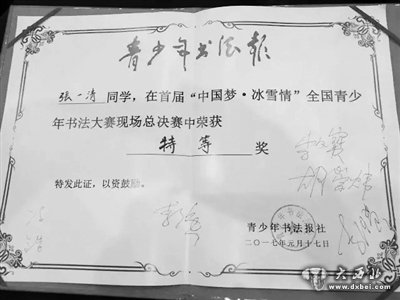 青少年书法报
张一清 同学，在首届“中国梦·冰雪情”全国青少
年书法大赛现场总决赛中荣获
特等奖
特发此证，以资鼓励。
青少年书法报社
二〇一七年元月十七日
大西北
www.dxbei.com